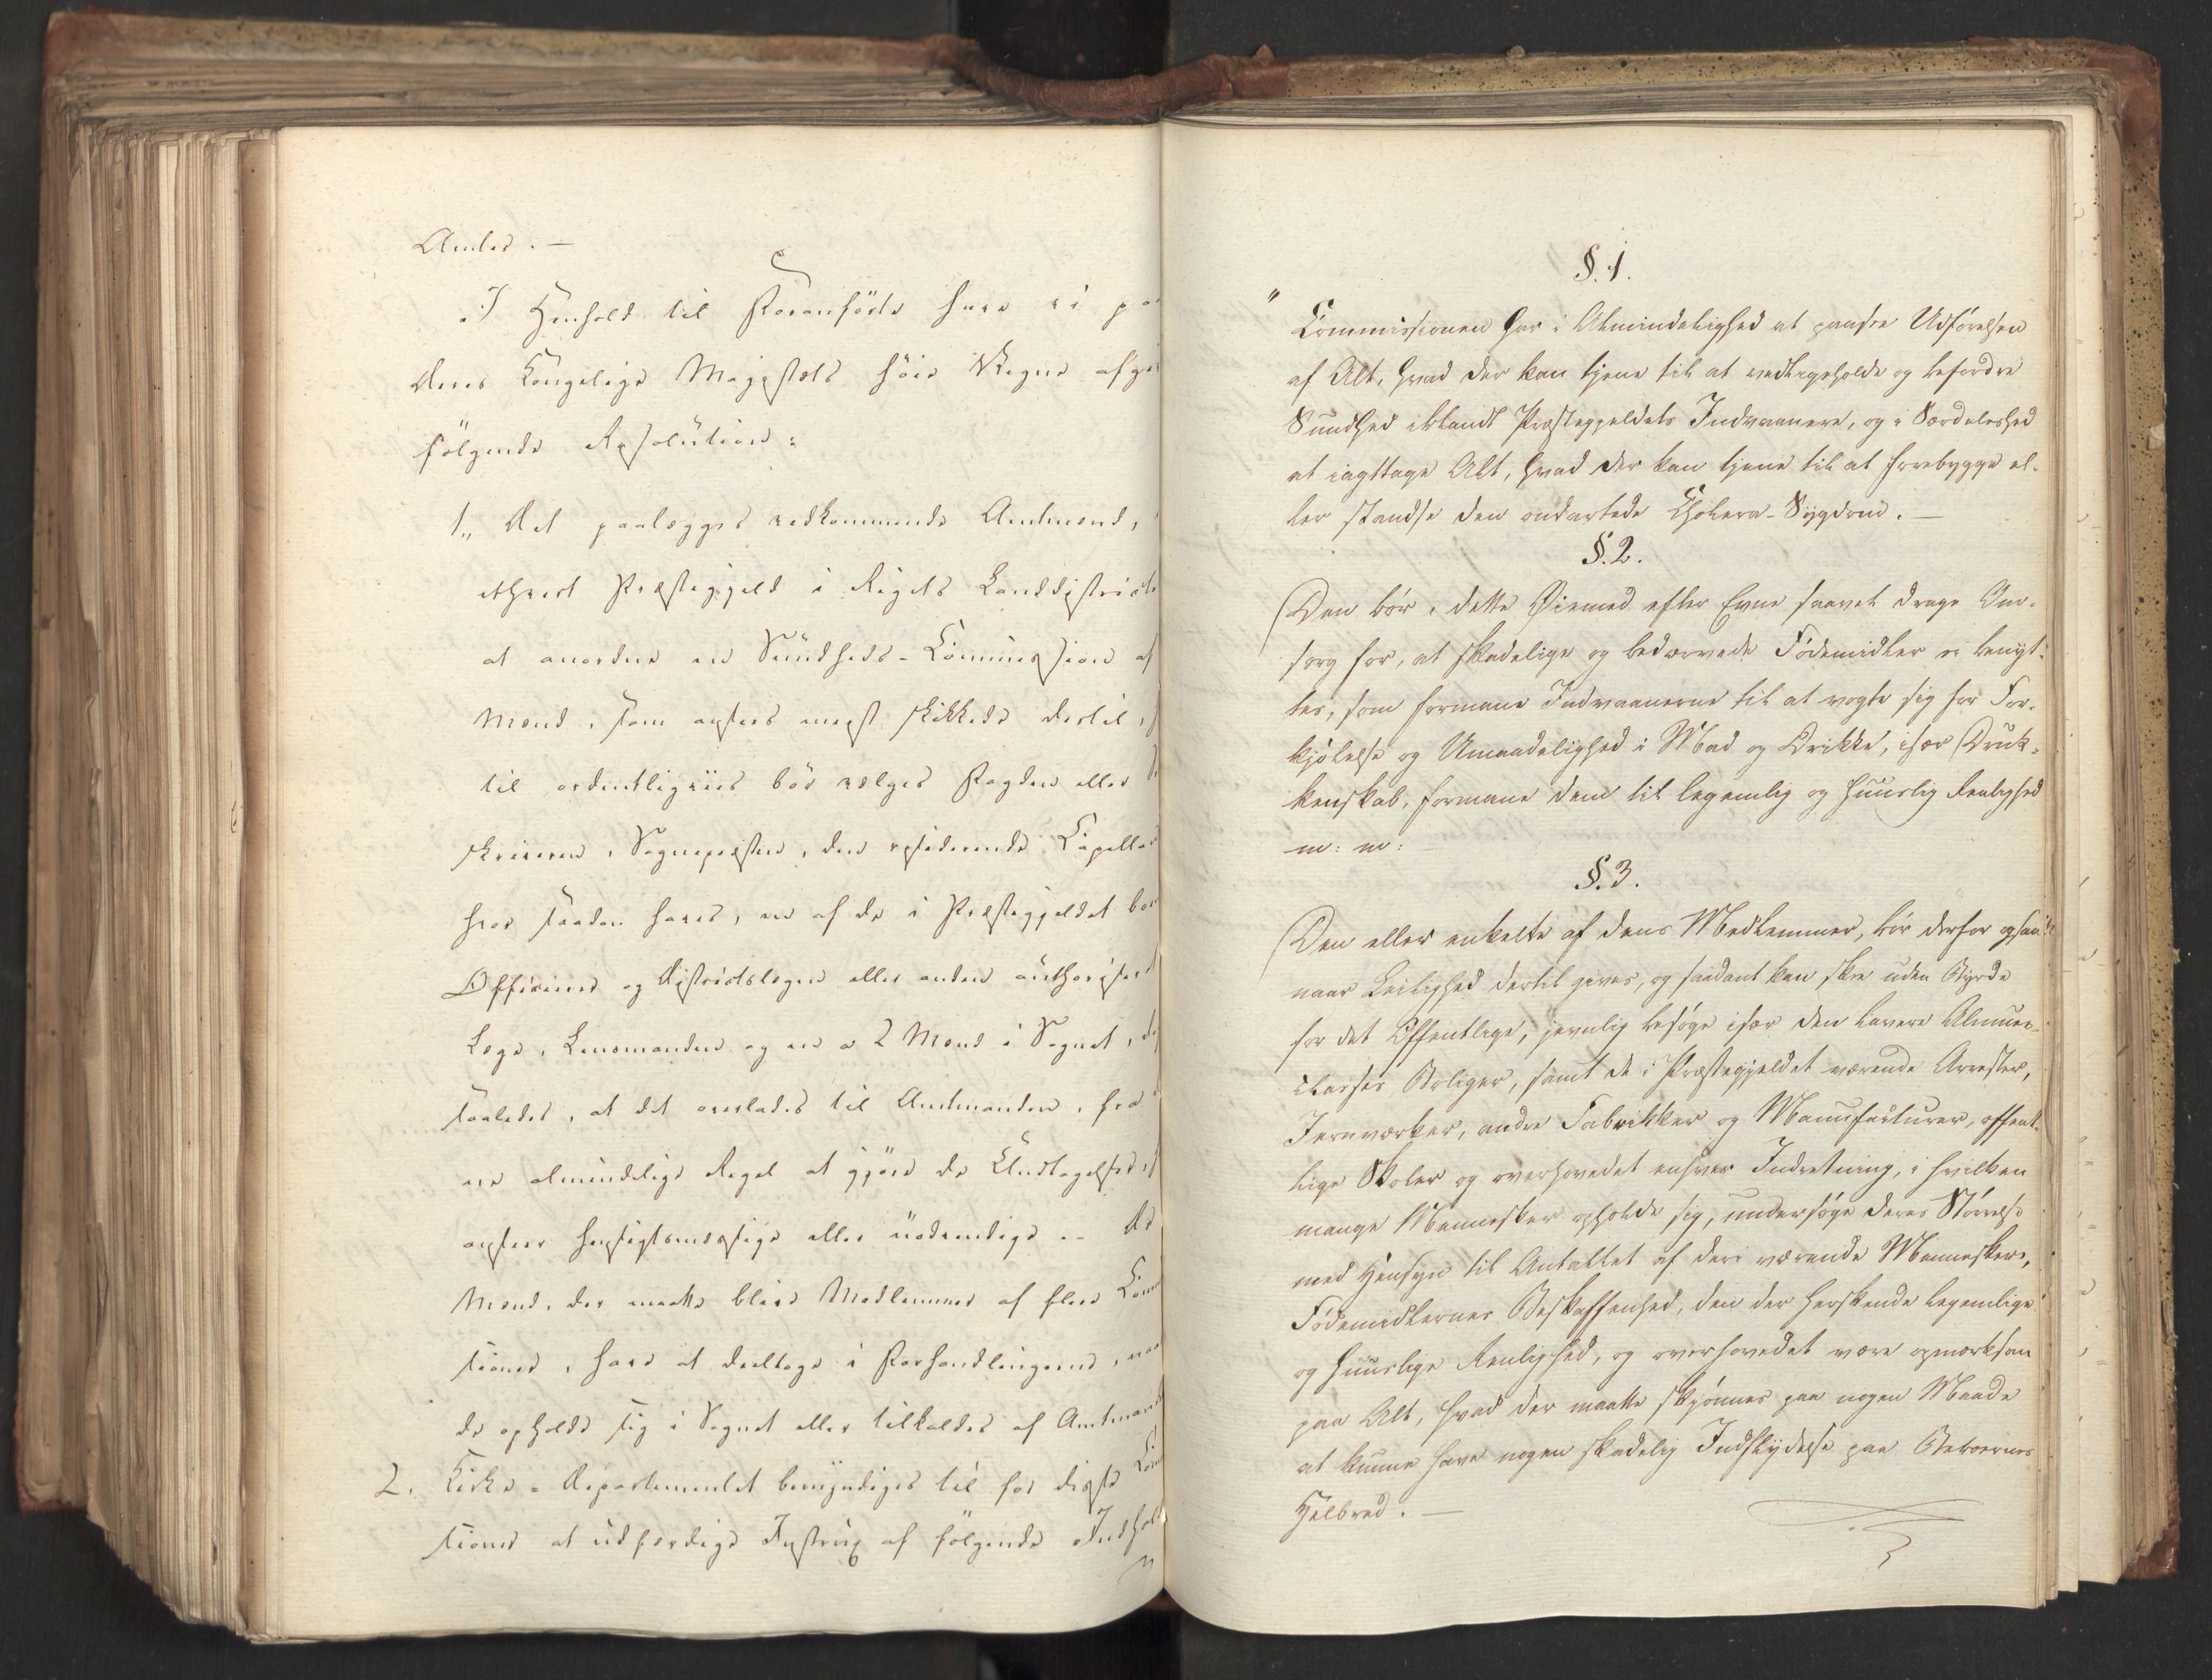 Amter. —
I Henhold til Foranførte have vi paa
Deres Kongelige Majestæts høie Vegne afgi
følgende Resolution:
1„ Det paalægges vedkommende Amtmænd, i
ethvert Præstegjeld i Rigets Landdistricte
at anordne en Sundheds-Commission af
Mænd, som ansees meest skikkede dertil,
til ordentligviis bør vælges Fogden eller
skriveren, Sognepræsten, den residerende Capellan
hvor saadan haves, en af de i Præstegjeldet bo
Officierer og Districtslægen eller anden authoriseret
Læge, Lensmanden og en a 2 Mænd i Sognet,
saaledes, at det overlades til Amtmanden, fra
ne almindelige Regel at gjøre de Undtagelser,
ansees hensigtsmæssige eller nødvendige. — De
Mænd, der maatte blive Medlemmer af flere Com
sioner, have at deeltage i Forhandlingerne, naar
de opholde sig i Sognet eller tilkaldes af Amtmand
2. Kirke-Departementet bemyndiges til for disse Com
sioner at udfærdige Instrux af følgende Indhold
§. 1.
" Commissionen har i Almindelighed at paasee Udførelsen
af Alt, hvad der kan tjene til at vedligeholde og befordre
Sundhed iblandt Præstegjeldets Indvaanere, og i Særdeleshed
at iagttage Alt, hvad der kan tjene til at forebygge el-
ler standse den ondartede Cholera-Sygdom. —
§. 2.
Den bør i dette Øiemed efter Evne saavel drage Om-
sorg for, at skadelige og bedærvede Fødemidler ei benyt-
tes, som formane Indvaanerne til at vogte sig for For-
kjølelse og Umaadelighed i Mad og Drikke, især Druk-
kenskab, formane dem til legemlig og huuslig Reenlighed
m: m:
§. 3.
Den eller enkelte af dens Medlemmer, bør derfor ogsaa
naar Leilighed dertil gives, og saadant kan skee uden Byrde
for det Offentlige, jevnlig besøge især den lavere Almues-
classes Boliger, samt de i Præstegjeldet værende Arrester,
Jernværker, andre Fabrikker og Manufacturer, offent-
lige Skoler og overhovedet enhver Indretning, i hvilken
mange Mennesker opholde sig, undersøge deres Størrelse
med Hensyn til Antallet af deri værende Mennesker,
Fødemidlernes Beskaffenhed, den der herskende legemlige
og huuslige Renlighed, og overhovedet være opmærksom
paa Alt, hvad der maatte skjønnes paa nogen Maade
at kunne have nogen skadelig Indflydelse paa Beboernes
Helbred. —